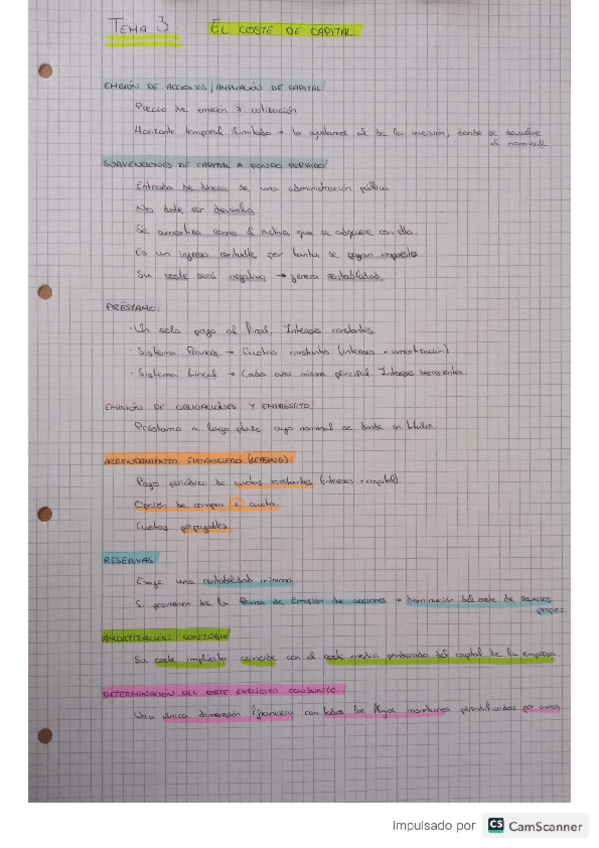 TEMA 3 EL COSTE DE CAPITAL
EMISIÓN DE ACCIONES / AMPLIACIÓN DE CAPITAL
Precio de emisión y cotización
Horizonte temporal ilimitado → lo ajustamos al de la inversión, donde se devuelve
el nominal
SUBVENCIONES DE CAPITAL A FONDO PERDIDO
Entrada de dinero de una administración pública
No debe ser devuelta.
Se amortiza como el activo que se adquiere con ella
Es un ingreso contable por tanto, se pagan impuestos
Su coste será negativo → genera rentabilidad.
PRÉSTAMO:
· Un solo pago al final. Intereses constantes
· Sistema Francés → Cuotas constantes (intereses + amortización)
· Sistema Lineal → Cada año mismo principal. Intereses decrecientes.
EMISIÓN DE OBLIGACIONES Y EMPRÉSTITO
Préstamo a largo plazo cuyo nominal se divide en títulos.
ARRENDAMIENTO FINANCIERO (LEASING)
Pago periódico de cuotas constantes (intereses + capital).
Opción de compra = cuota.
Cuotas prepagables.
RESERVAS
Exige una rentabilidad mínima
Si provienen de la Prima de Emisión de acciones → disminución del coste de recursos
propios.
AMORTIZACIÓN CONTABLE
Su coste implícito coincide con el coste medio ponderado del capital de la empresa.
DETERMINACIÓN DEL COSTE EXPLÍCITO CONJUNTO
Una única dimensión financiera con todos los flujos monetarios periodificados por años
Impulsado por CS CamScanner